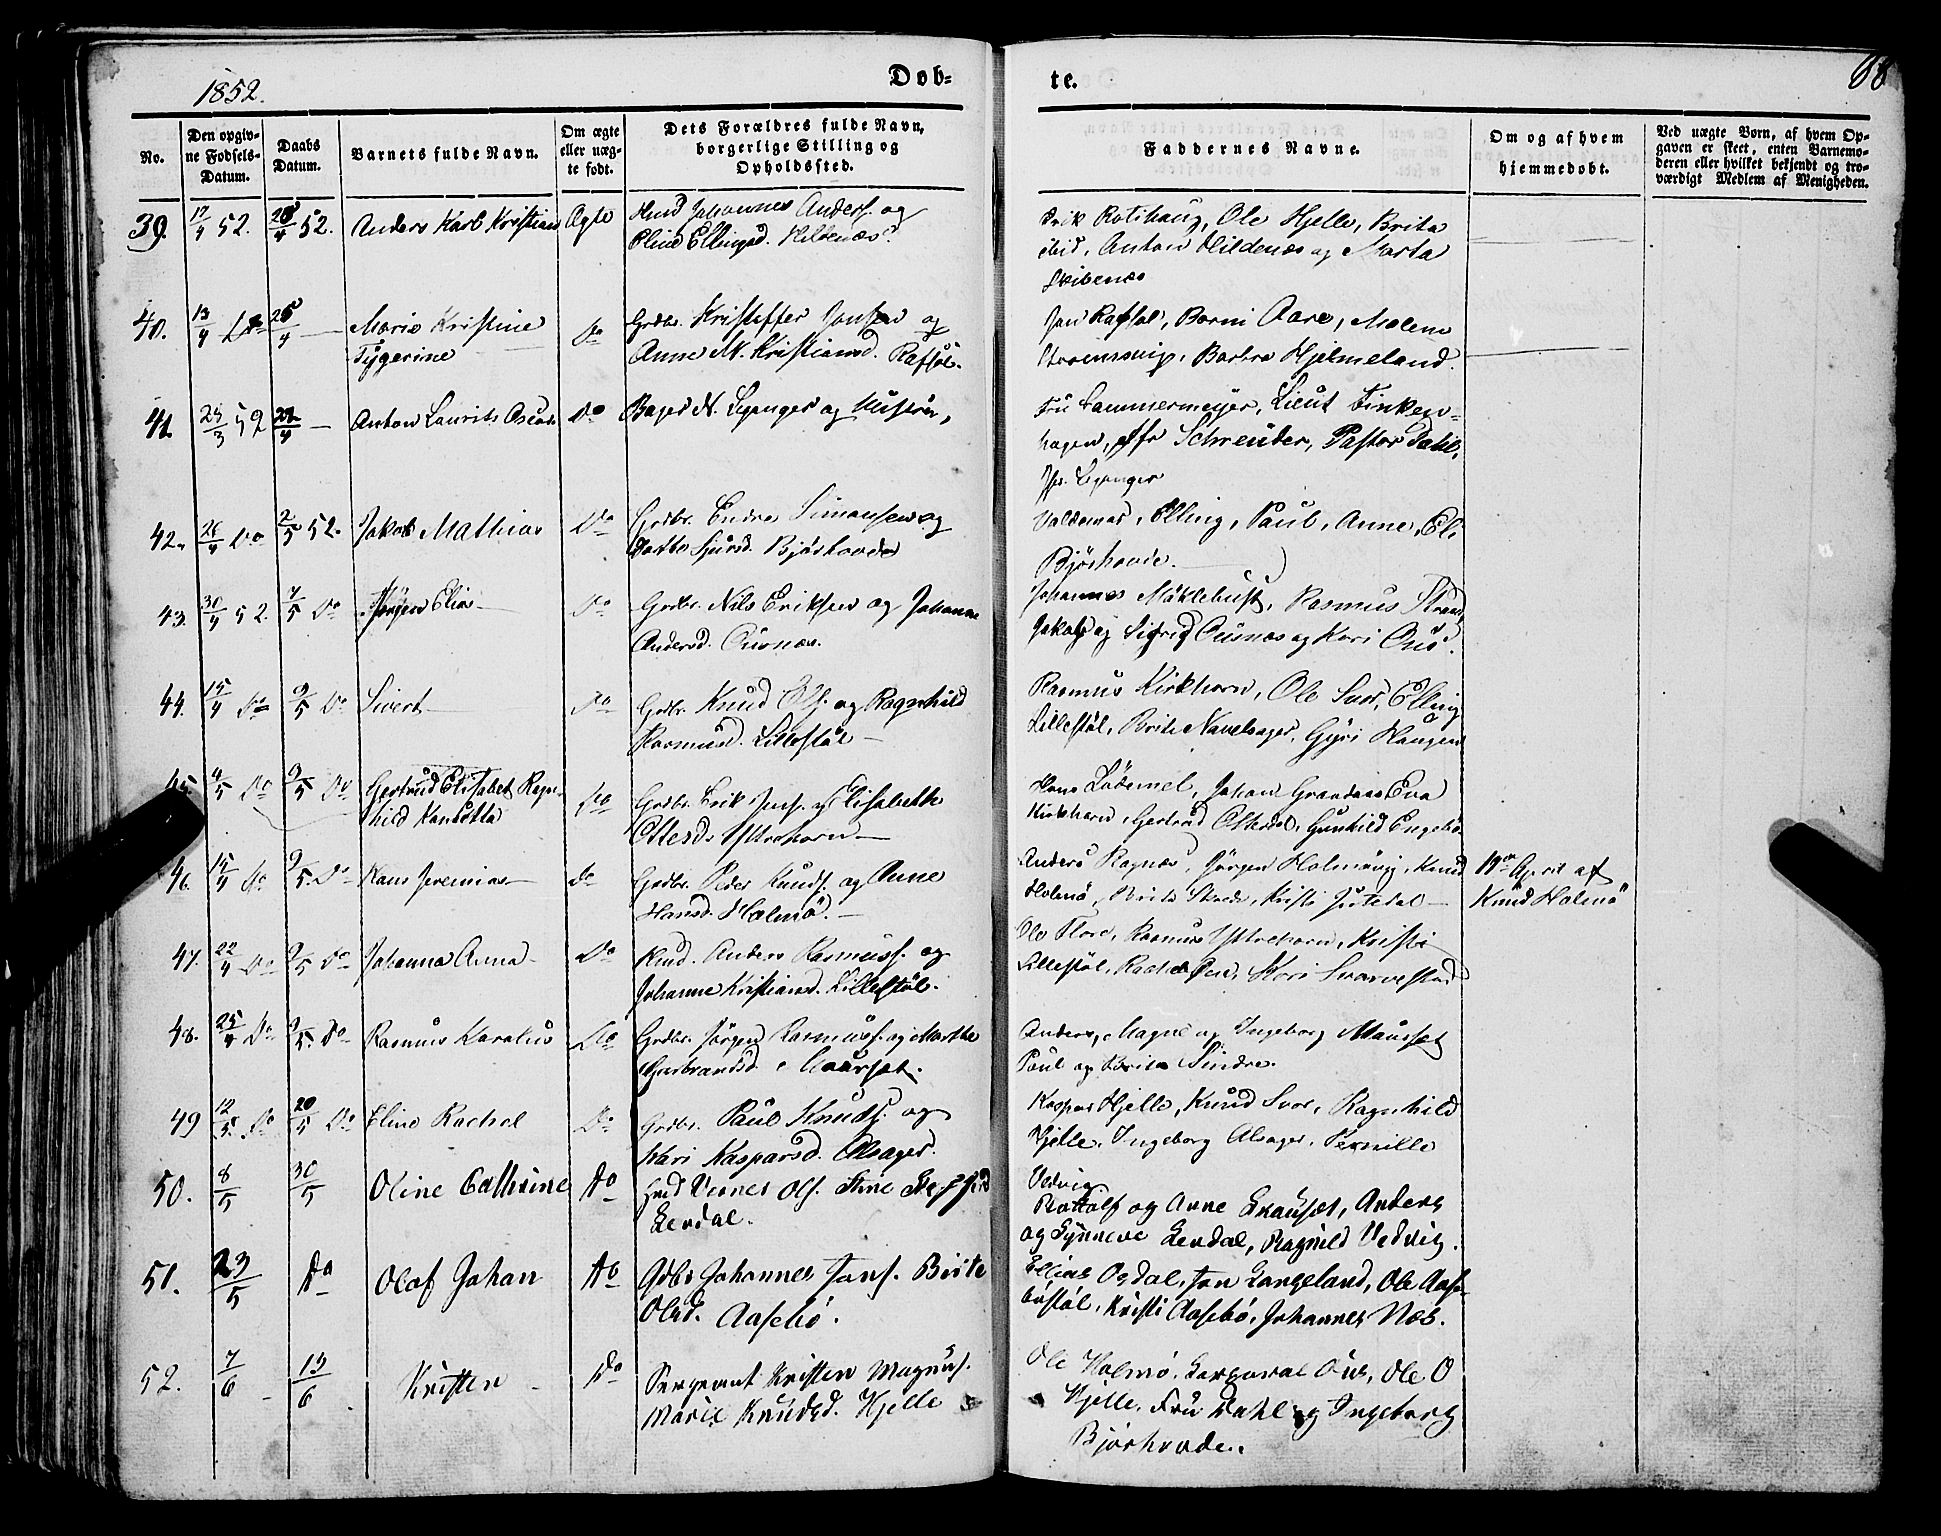 1852.
Døb-
te.
68
No.
Den opgiv-
ne Fødsels-
Datum.
Daabs
Datum.
Barnets fulde Navn.
Om ægte
eller uæg-
te født.
Dets Forældres fulde Navn,
borgerlige Stilling og
Opholdssted.
Faddernes Navne.
Om og af hvem
hjemmedøbt.
Ved uægte Børn, af hvem Op-
gaven er skeet, enten Barnemo-
deren eller hvilket bekjendt og tro-
værdigt Medlem af Menigheden.
39. 17/4 52. 25/4 52. Anders Karl Kristian Ægte Huusd Johannes Anders. og
Oline Ellingsd. Hildenæs.
Erik Rotihaug, Ole Hjelle, Brita
ibid, Anton Hildenæs og Marta
Skibenæs
40. 13/4 Do 25/4 — Marie Kristine Do Grdbr. Kristoffer Jansen og
Tygerine Anne M. Kristiansd. Rafsøl.
Jan Rafsøl, Borni Aare, Malene
Barbra Hjelmeland.
41. 23/3 52 27/4 — Anton Laurits Oscar Do Bager N. Leganger og Hustru,
Fru Lammermeyer, Lieut Finken-
hagen, Jfr Schreuder, Pastor Dahl,
Jfr. Leganger
42. 26/4 Do 2/5 52. Jakob Mathias Do Grdbr. Endre Simonsen og
Sjursd. Bjørhovde
Valdemar, Elling, Paul, Anne, El.
Bjørhovde.
43. 30/4 52. 7/5 Do Jørgen Elias — Do Grdbr. Nils Eriksen og Johanne
Andersd. Ousnæs.
Johannes Mäklebust, Rasmus Strand
Jakob og Sigrid Ousnæs og Kari Ous.
44. 15/4 Do 9/5 Do Sivert — Do Grdbr. Knud Ols. og Ragnhild
Rasmusd. Lillestøl —
Rasmus Kirkhorn, Ole Svor, Elling
Lillestøl, Brite Navelsager, Gyri Haugen
45. 4/5 Do 9/5 Do Gertrud Elisabet Ragn- Do Grdbr. Erik Jens. og Elisabeth
hild Kanutta Ottesd. Yttrehorn —
Hans Lødemel, Johan Grandaas Eva
Kirkhorn, Gertrud Ottersd, Gunhild Engebø
46. 15/4 Do 9/5 Do Hans Jeremias — Do Grdbr. Peder Knuds. og Anne
Hansd. Holmø. —
Anders Ragnæs, Jørgen Holmøvig, Knud
Holmø, Brita Strand, Kristi Jutedal —
19de April af
Knud Holmø
47. 22/4 Do 9/5 Do Johanna Anna — Do Anders Rasmuss. og
Johanne Kristiansd. Lillestøl.
Ole Flore, Rasmus Yttrehorn, Kristi
Lillestøl, Rachel Kari Svarvestad
48. 25/4 Do 9/5 Do Rasmus Karolus Do Grdbr. Jørgen Rasmuss. og Marthe
Guldbrandsd. Maurset.
Anders, Magne og Ingeborg Maurset
Paul og Brita Sindre.
49 12/5 Do 20/5 Do Eline Rachel Do Grdbr. Paul Knuds. og
Kari Kaspersd. Alsager.
Kasper Hjelle, Knud Svor, Ragnhild
Hjelle, Ingeborg Alsager, Pernille
Vedvig
50. 8/5 30/5 Oline Cathrine Do Huusd Verner Ols. Stine
Levdal.
Rottolf og Anne Grauset, Anders
og Synneve Levdal, Ragnild Vedvig.
51. 23/5 Do Olaf Johan Do Gdbr Johannes Jons. Birte
Olsd. Aasebø.
Elias Osdal, Jon Langeland, Ole Aase-
bøstøl, Kristi Aasebø, Johannes Næs.
52. 7/6 — 13/6 Kristen — Do Sergeant Kristen Magnus.
Marie Knudsd. Hjelle
Ole Holmø, Corporal Ous, Ole O
Hjelle, Fru Dahl og Ingeborg
Bjørhovde.